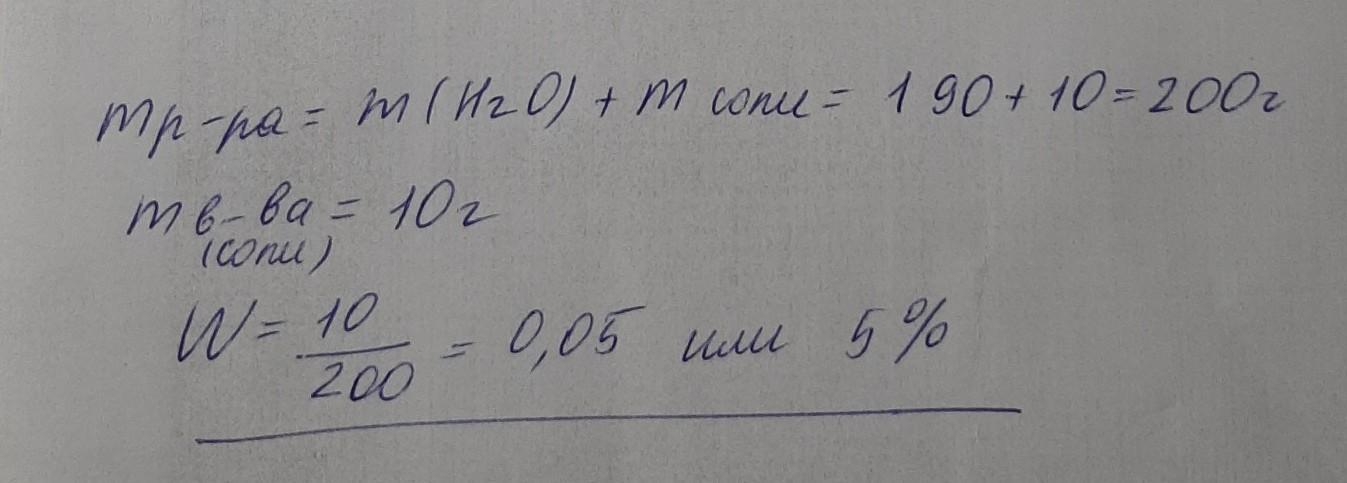 mр-ра = m(H2O) + m соли = 190 + 10 = 200г
m в-ва = 10г
(соли)
W = 10/200 = 0,05 или 5%